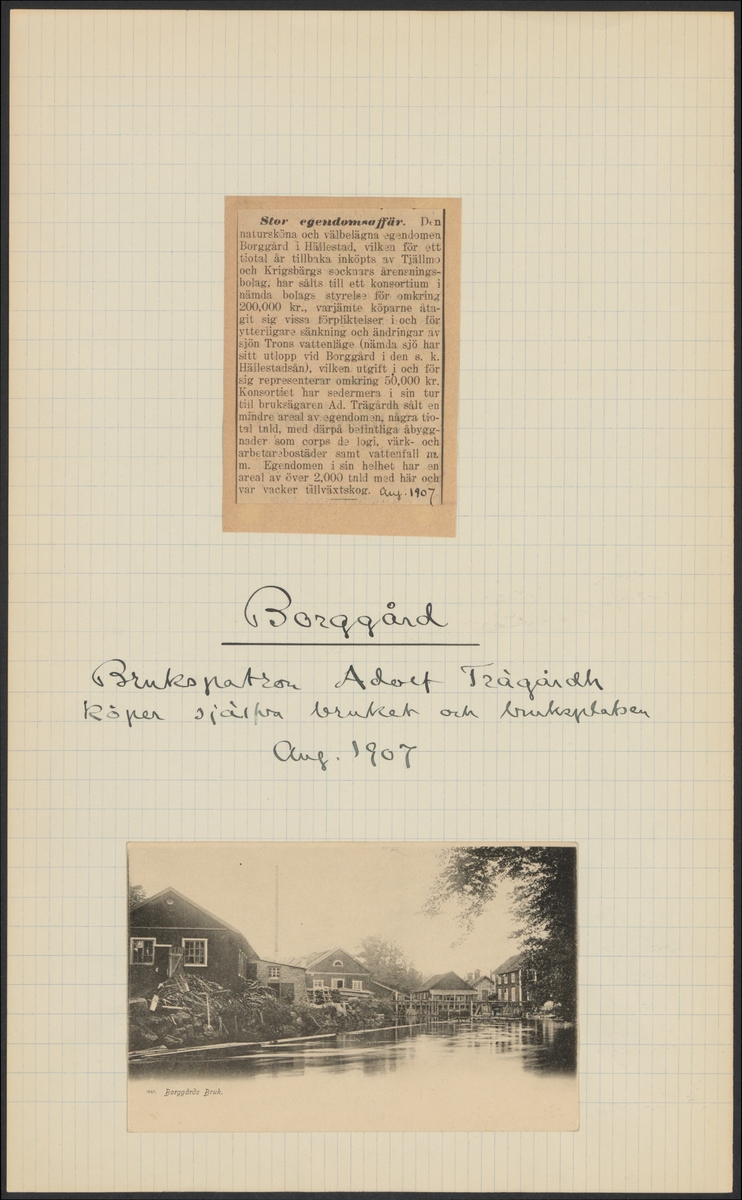 Stor egendomsaffär. Den
natursköna och välbelägna egendomen
Borggård i Hällestad, vilken för ett
tiotal år tillbaka inköpts av Tjällmo
och Krigsbärgs socknars årensnings-
bolag, har sålts till ett konsortium i
nämda bolags styrelse för omkring
200,000 kr., varjämte köparne åta-
git sig vissa förpliktelser i och för
ytterligare sänkning och ändringar av
sjön Trons vattenläge (nämda sjö har
sitt utlopp vid Borggård i den s. k.
Hällestadsån), vilken utgift i och för
sig representerar omkring 50,000 kr.
Konsortiet har sedermera i sin tur
till bruksägaren Ad. Trägårdh sålt en
mindre areal av egendomen, några tio-
tal tnld, med därpå befintliga åbygg-
nader som corps de logi, värk- och
arbetarebostäder samt vattenfall m.
m. Egendomen i sin helhet har en
areal av över 2,000 tnld med här och
var vacker tillväxtskog. Aug. 1907
Borggård
Brukspatron Adolf Trägårdh
köper själfva bruket och bruksplatsen
Aug. 1907
Borggårds Bruk.